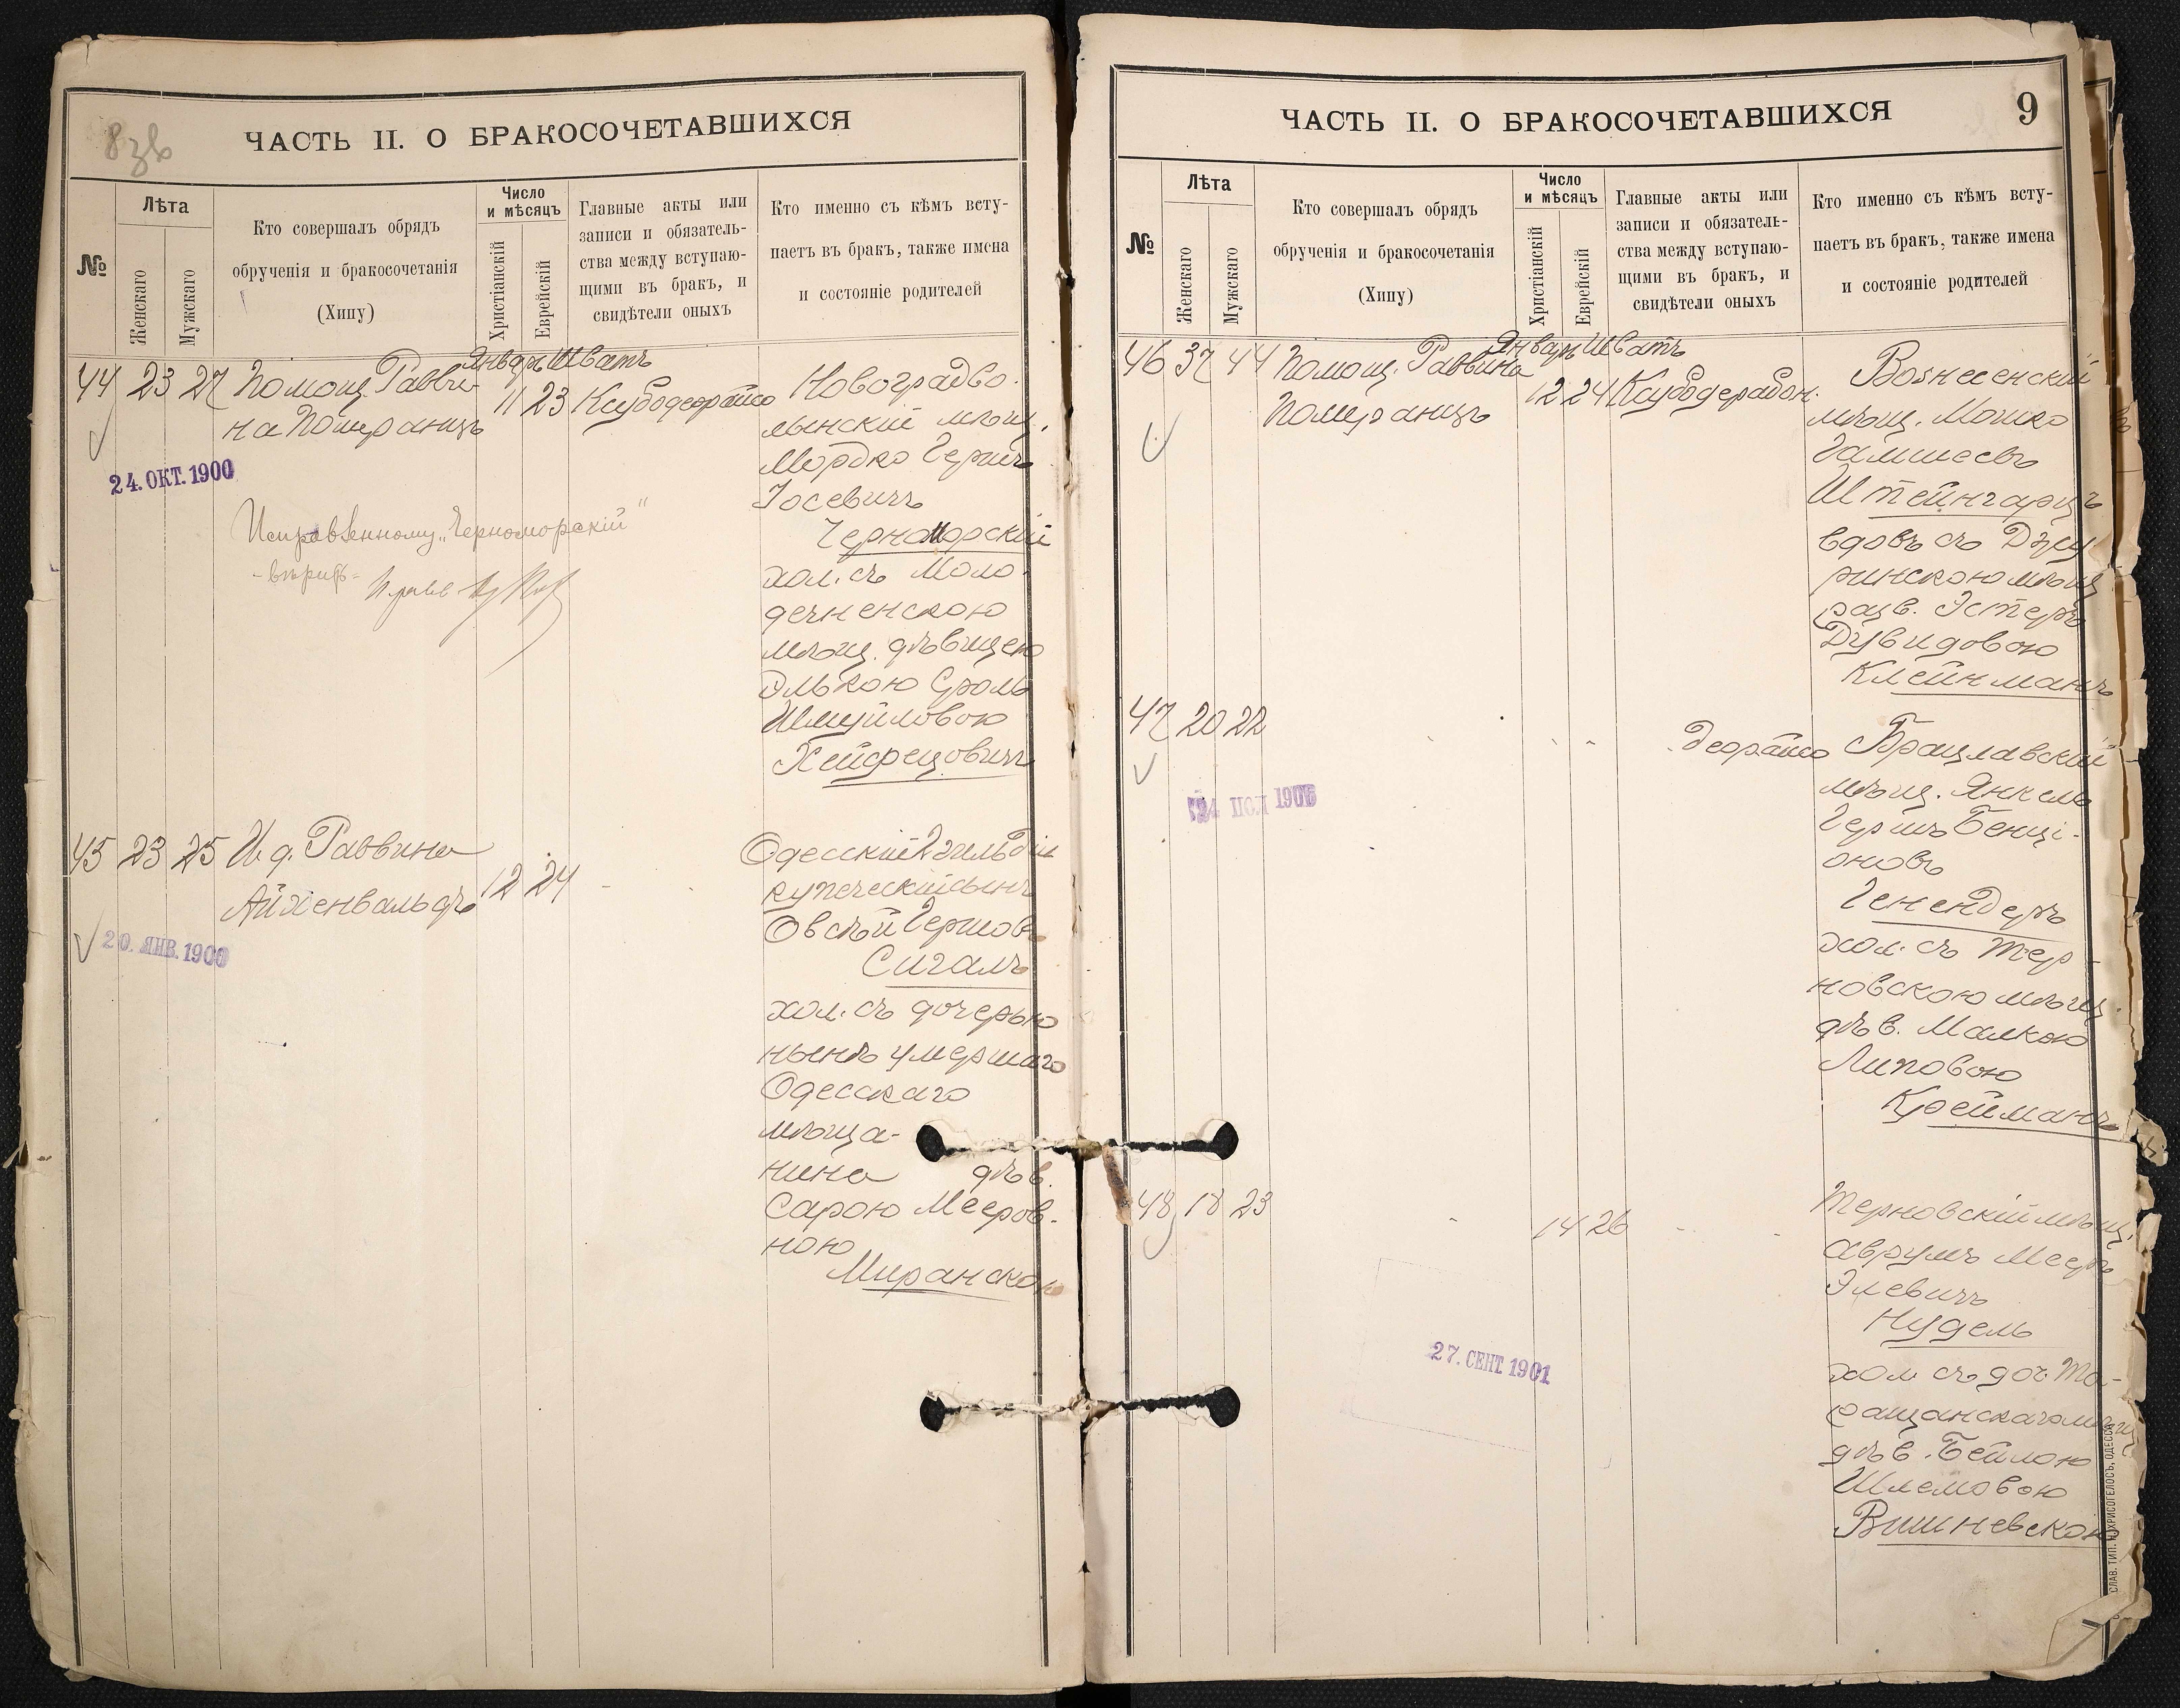 8 зв
ЧАСТЬ II. О БРАКОСОЧЕТАВШИХСЯ
№
Лѣта
Женскаго
Мужскаго
Кто совершалъ обрядъ
обрученія и бракосочетанія
(Хипу)
Число
и мѣсяцъ
Христіанскій
Еврейскій
Главные акты или
записи и обязатель-
ства между вступаю-
щими въ бракъ, и
свидѣтели оныхъ
Кто именно съ кѣмъ всту-
паетъ въ бракъ, также имена
и состояніе родителей
44 23 27
Помощ. Равви-
на Помранцъ
Январь Шватъ
11 23
24. ОКТ. 1900
Исправленному "Черноморскій"
-вѣрить-
Новоградво-
лынскій мѣщ.
Мордко Гершъ
Іосевичъ
Черноморскій
хол. съ Моло-
дечненскою
мѣщ. дѣвицею
Элькою Сроль
Шмуйловою
Хейфецовичъ
45 23 25
И. д. Раввина
Айхенвальдъ
12 24
20. ЯНВ. 1900
Одесскій 2 гильдіи
купеческій сынъ
Овсѣй Гершовъ
Сигалъ
хол. съ дочерью
нынѣ умершаго
Одесскаго
мѣща-
нина дѣв.
Сарою Мееров-
ною
Миранскою
ЧАСТЬ II. О БРАКОСОЧЕТАВШИХСЯ
9
№
Лѣта
Женскаго
Мужскаго
Кто совершалъ обрядъ
обрученія и бракосочетанія
(Хипу)
Число
и мѣсяцъ
Христіанскій
Еврейскій
Главные акты или
записи и обязатель-
ства между вступаю-
щими въ бракъ, и
свидѣтели оныхъ
Кто именно съ кѣмъ всту-
паетъ въ бракъ, также имена
и состояніе родителей
46 37 44
Помощ. Раввина
Померанцъ
Январь Шватъ
12 24
Вознесенскій
мѣщ. Мошко
Гамшеевъ
Штейнгарцъ
вдовъ съ Джу
ринскою мѣщ
разв. Эстеръ
Дувидовою
Клейнманъ
47 20 22
Брацлавскій
мѣщ. Янкель
Гершъ Бенці-
оновъ
Генендеръ
хол. съ Тер-
новскою мѣщ.
дѣв. Малкою
Липовою
Крейманъ
48 18 23
14 26
27. СЕНТ. 1901
Терновскій мѣщ.
Аврумъ Мееръ
Элевичъ
Нудель
хол. съ доч. Та-
ращанскаго мѣщ
дѣв. Бейлою
Шлемовою
Вишневскою
СЛАВ. ТИП. Н. ХРИСОГЕЛОСЪ, ОДЕССА